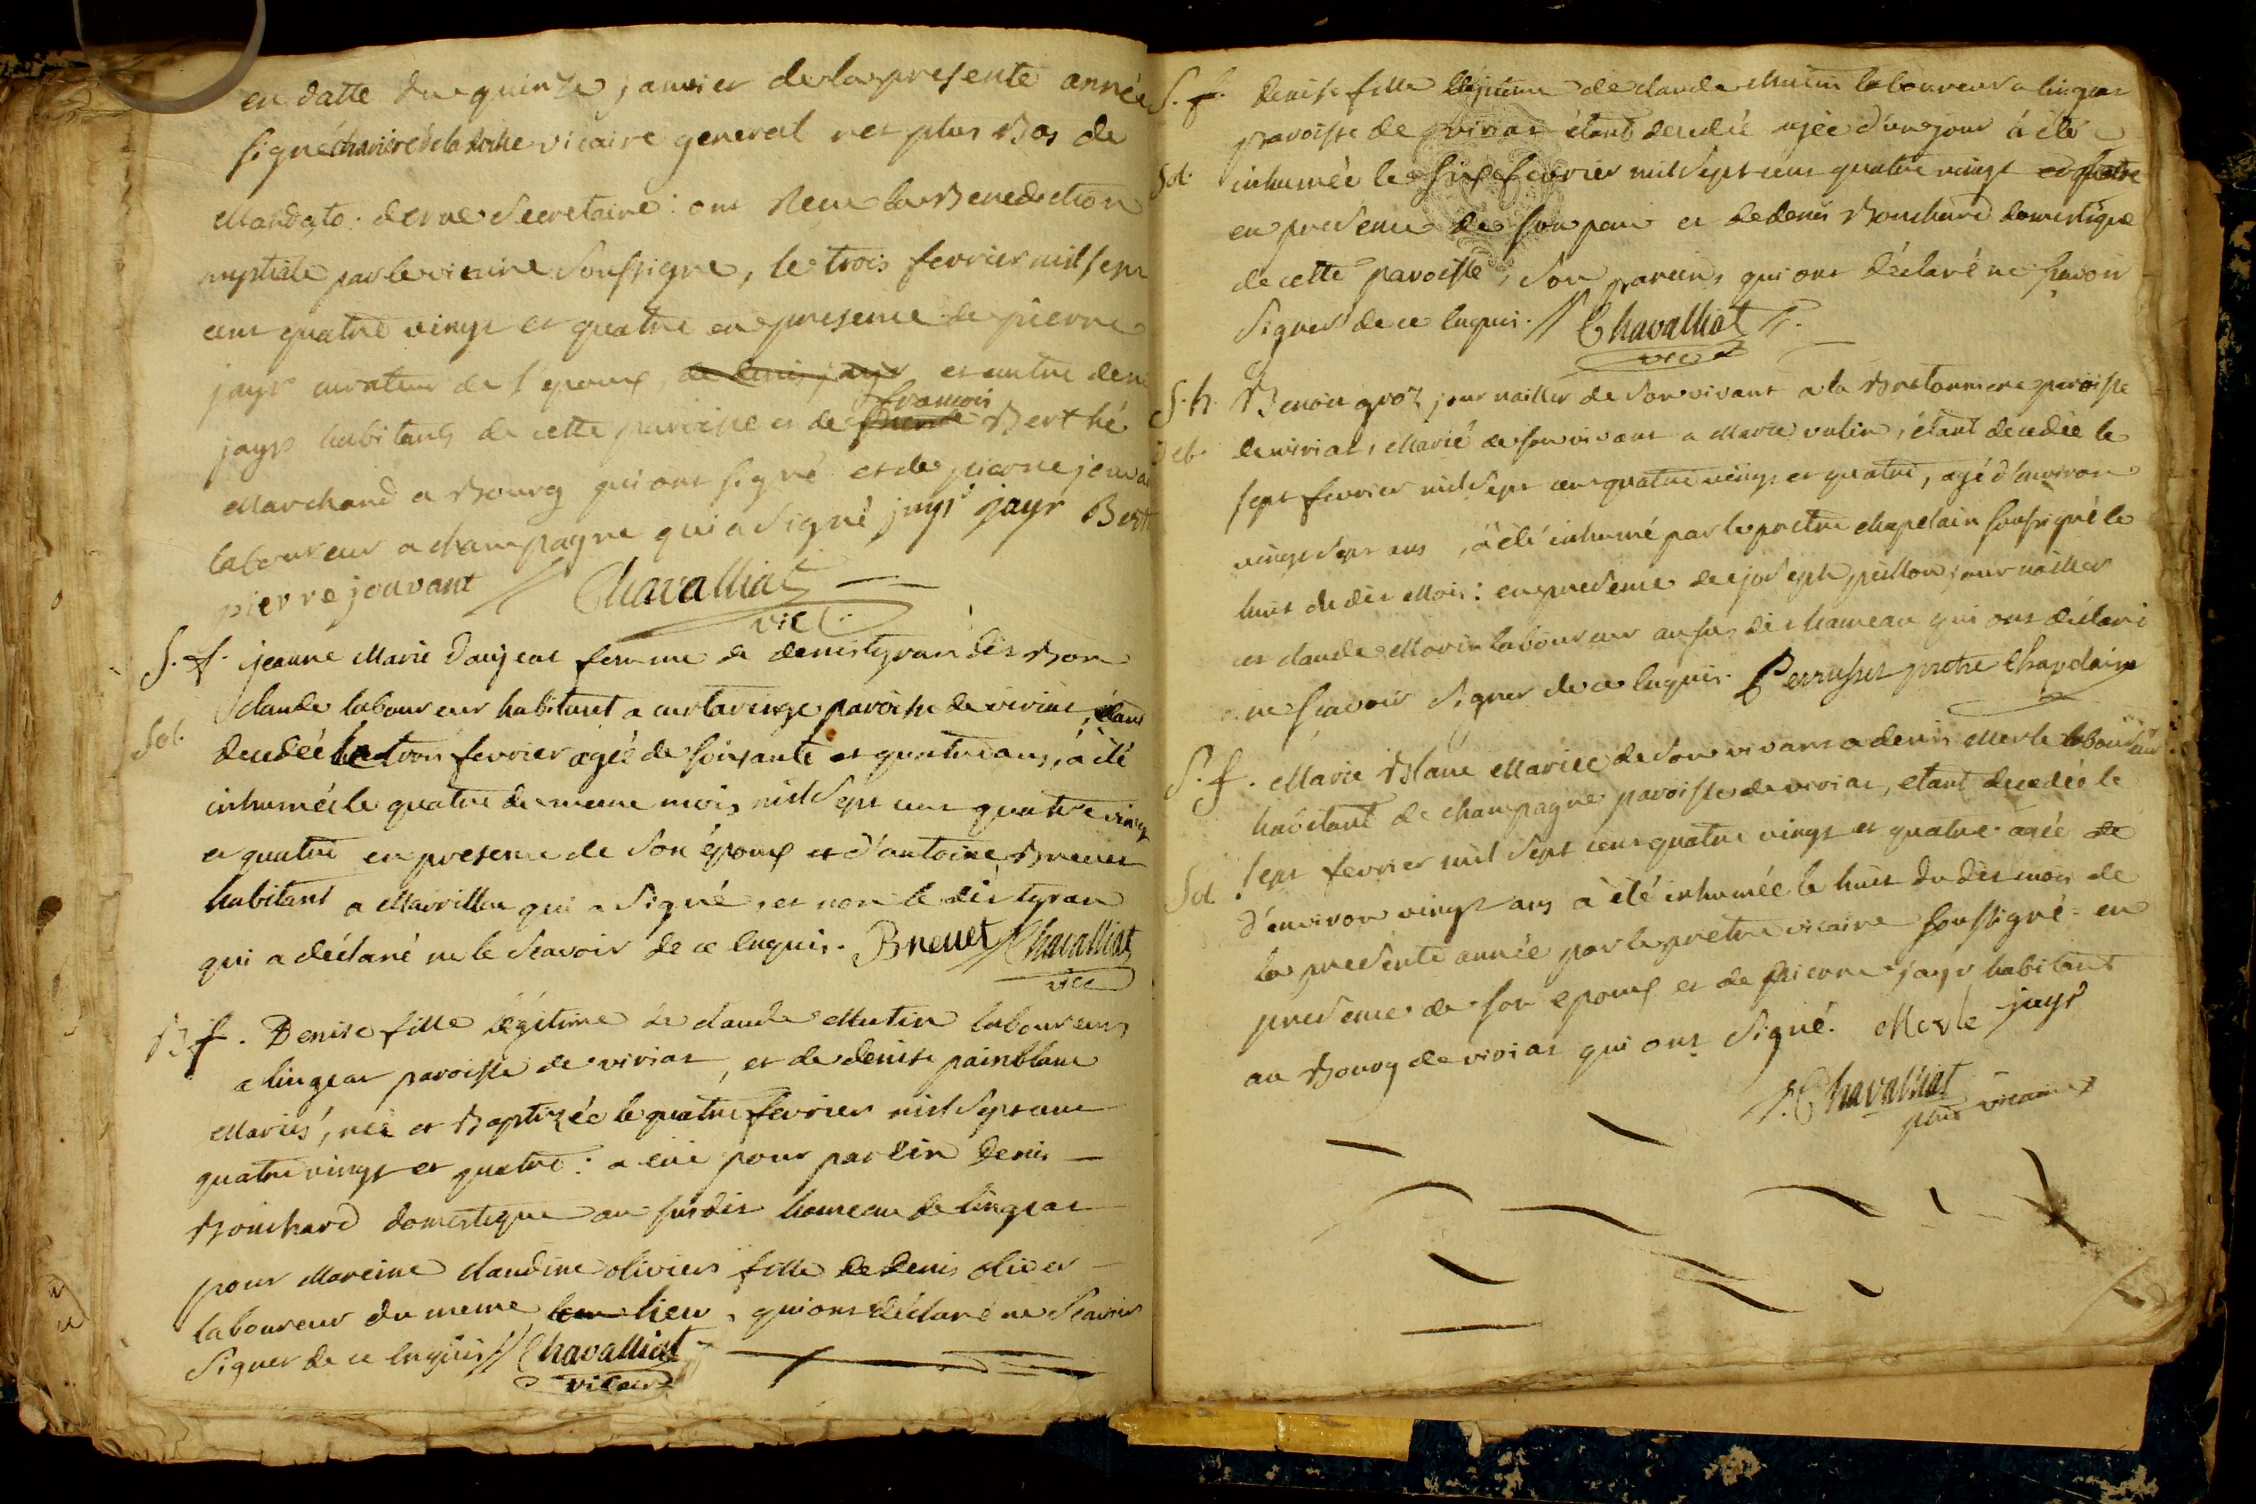 en datte du quinze janvier de la presente année
signé charrier de la Roche vicaire general et plus Bas de
Mandato: derue Secretaire: ont Recu la Benediction
nuptiale par le vicaire Soussigne, le trois fevrier mil sept
cent quatre vingt et quatre en presence de pierre
jayr curateur de l'epoux, de denis jayr et autre denis
jayr habitants de cette paroisse et de pierre françois Berthé
Marchand a Bourg qui ont signé et de pierre jouvant
laboureur a champagne qui a Signé jayr jayr Bert
pierre jouvant Chavalliat
vic
S. f. jeanne Marie daujeat femme de denis tyran dit Bon
claude laboureur habitant a curtaringe paroisse de viriat, étant
Sol.
decedée le trois fevrier agée de soixante et quatre ans, a été
inhumée le quatre du meme mois mil Sept cent quatre vingt
et quatre en presence de Son époux et d'antoine Breuet
habitant a Marvillon qui a Signé, et non le dit tyran
qui a déclaré ne le Scavoir de ce Enquis. Breuet Chavalliat
vic
B. f. Denise fille légitime de claude Mutin laboureur
a lingeat paroisse de viriat, et de denise painblanc
Mariés, née et Baptizée le quatre fevrier mil Sept cent
quatre vingt et quatre: a eüe pour parein denis
Bouchard domestique au susdit hameau de lingeat
pour Mareine claudine olivier fille de denis olivier
laboureur du meme lieu, qui ont déclaré ne Scavoir
Signer de ce Enquis Chavalliat
vicaire
S. f. denise fille légitime de claude Mutin laboureur a lingeat
paroisse de viriat étant decedée agée d'un jour a été
Sol.
inhumée le six fevrier mil Sept cent quatre vingt et quatre
en presence de son pere et de denis Bouchard domestique
de cette paroisse, Son parein, qui ont déclaré ne scavoir
Signer de ce Enquis. Chavalliat
vic
S. h. Benoit journaillier de Son vivant a la Bretonniere paroisse
de viriat, Marié de son vivant a Marie vulin, étant decedée le
sept fevrier mil Sept cent quatre vingt et quatre, agé d'environ
vingt Sept ans, a été inhumé par le pretre chapelain Sousigné le
huit du dit Mois: en presence de joseph pillon journaillier
et claude Morin laboureur au sus dit hameau qui ont déclaré
ne scavoir Signer de ce Enquis. Perrusset pretre Chapelain
S. f. Marie Blanc Mariée de Son vivant a denis Merle laboureur
habitant de champagne paroisse de viriat, etant decedée le
Sol.
sept fevrier mil Sept cent quatre vingt et quatre agée de
d'environ vingt ans a été inhumée le huit du dit mois de
la presente année par le pretre vicaire soussigné: en
presence de son epoux et de pierre jayr habitant
au Bourg de viriat qui ont Signé. Merle jayr
Chavalliat
vicaire